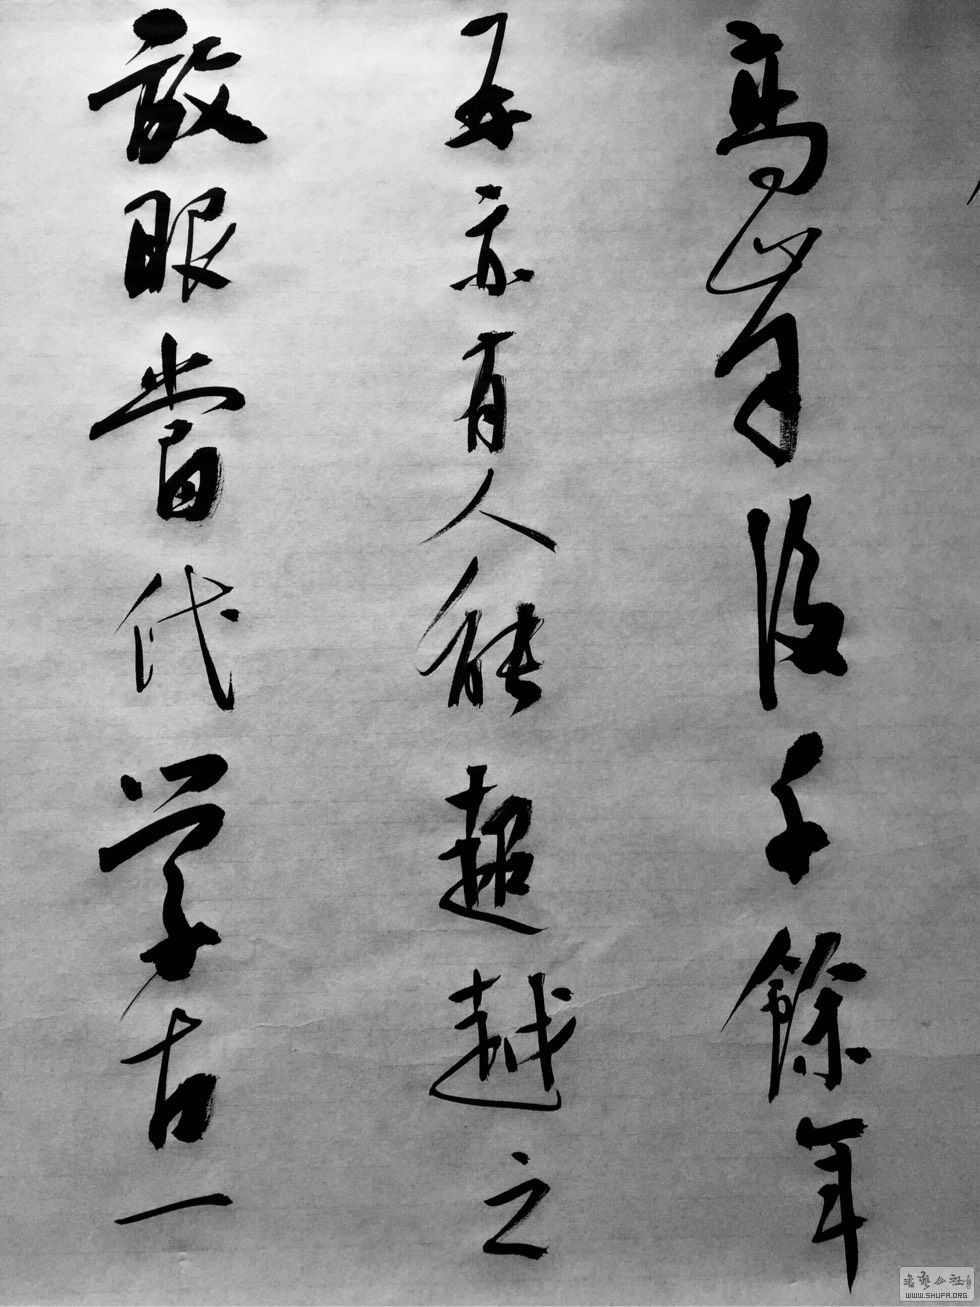 高後千餘年
亦有人能超越之
放眼當代学古一
書藝公社
WWW.SHUFA.ORG